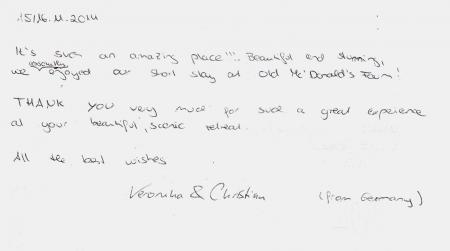 15/16.11.2014
It's such an amazing place!!! Beautiful and stunning,
we especially enjoyed our short stay at Old Mc'Donald's Farm!
THANK YOU very much for such a great experience
at your beautiful, scenic retreat.
All the best wishes
Veronika & Christian (from Germany)